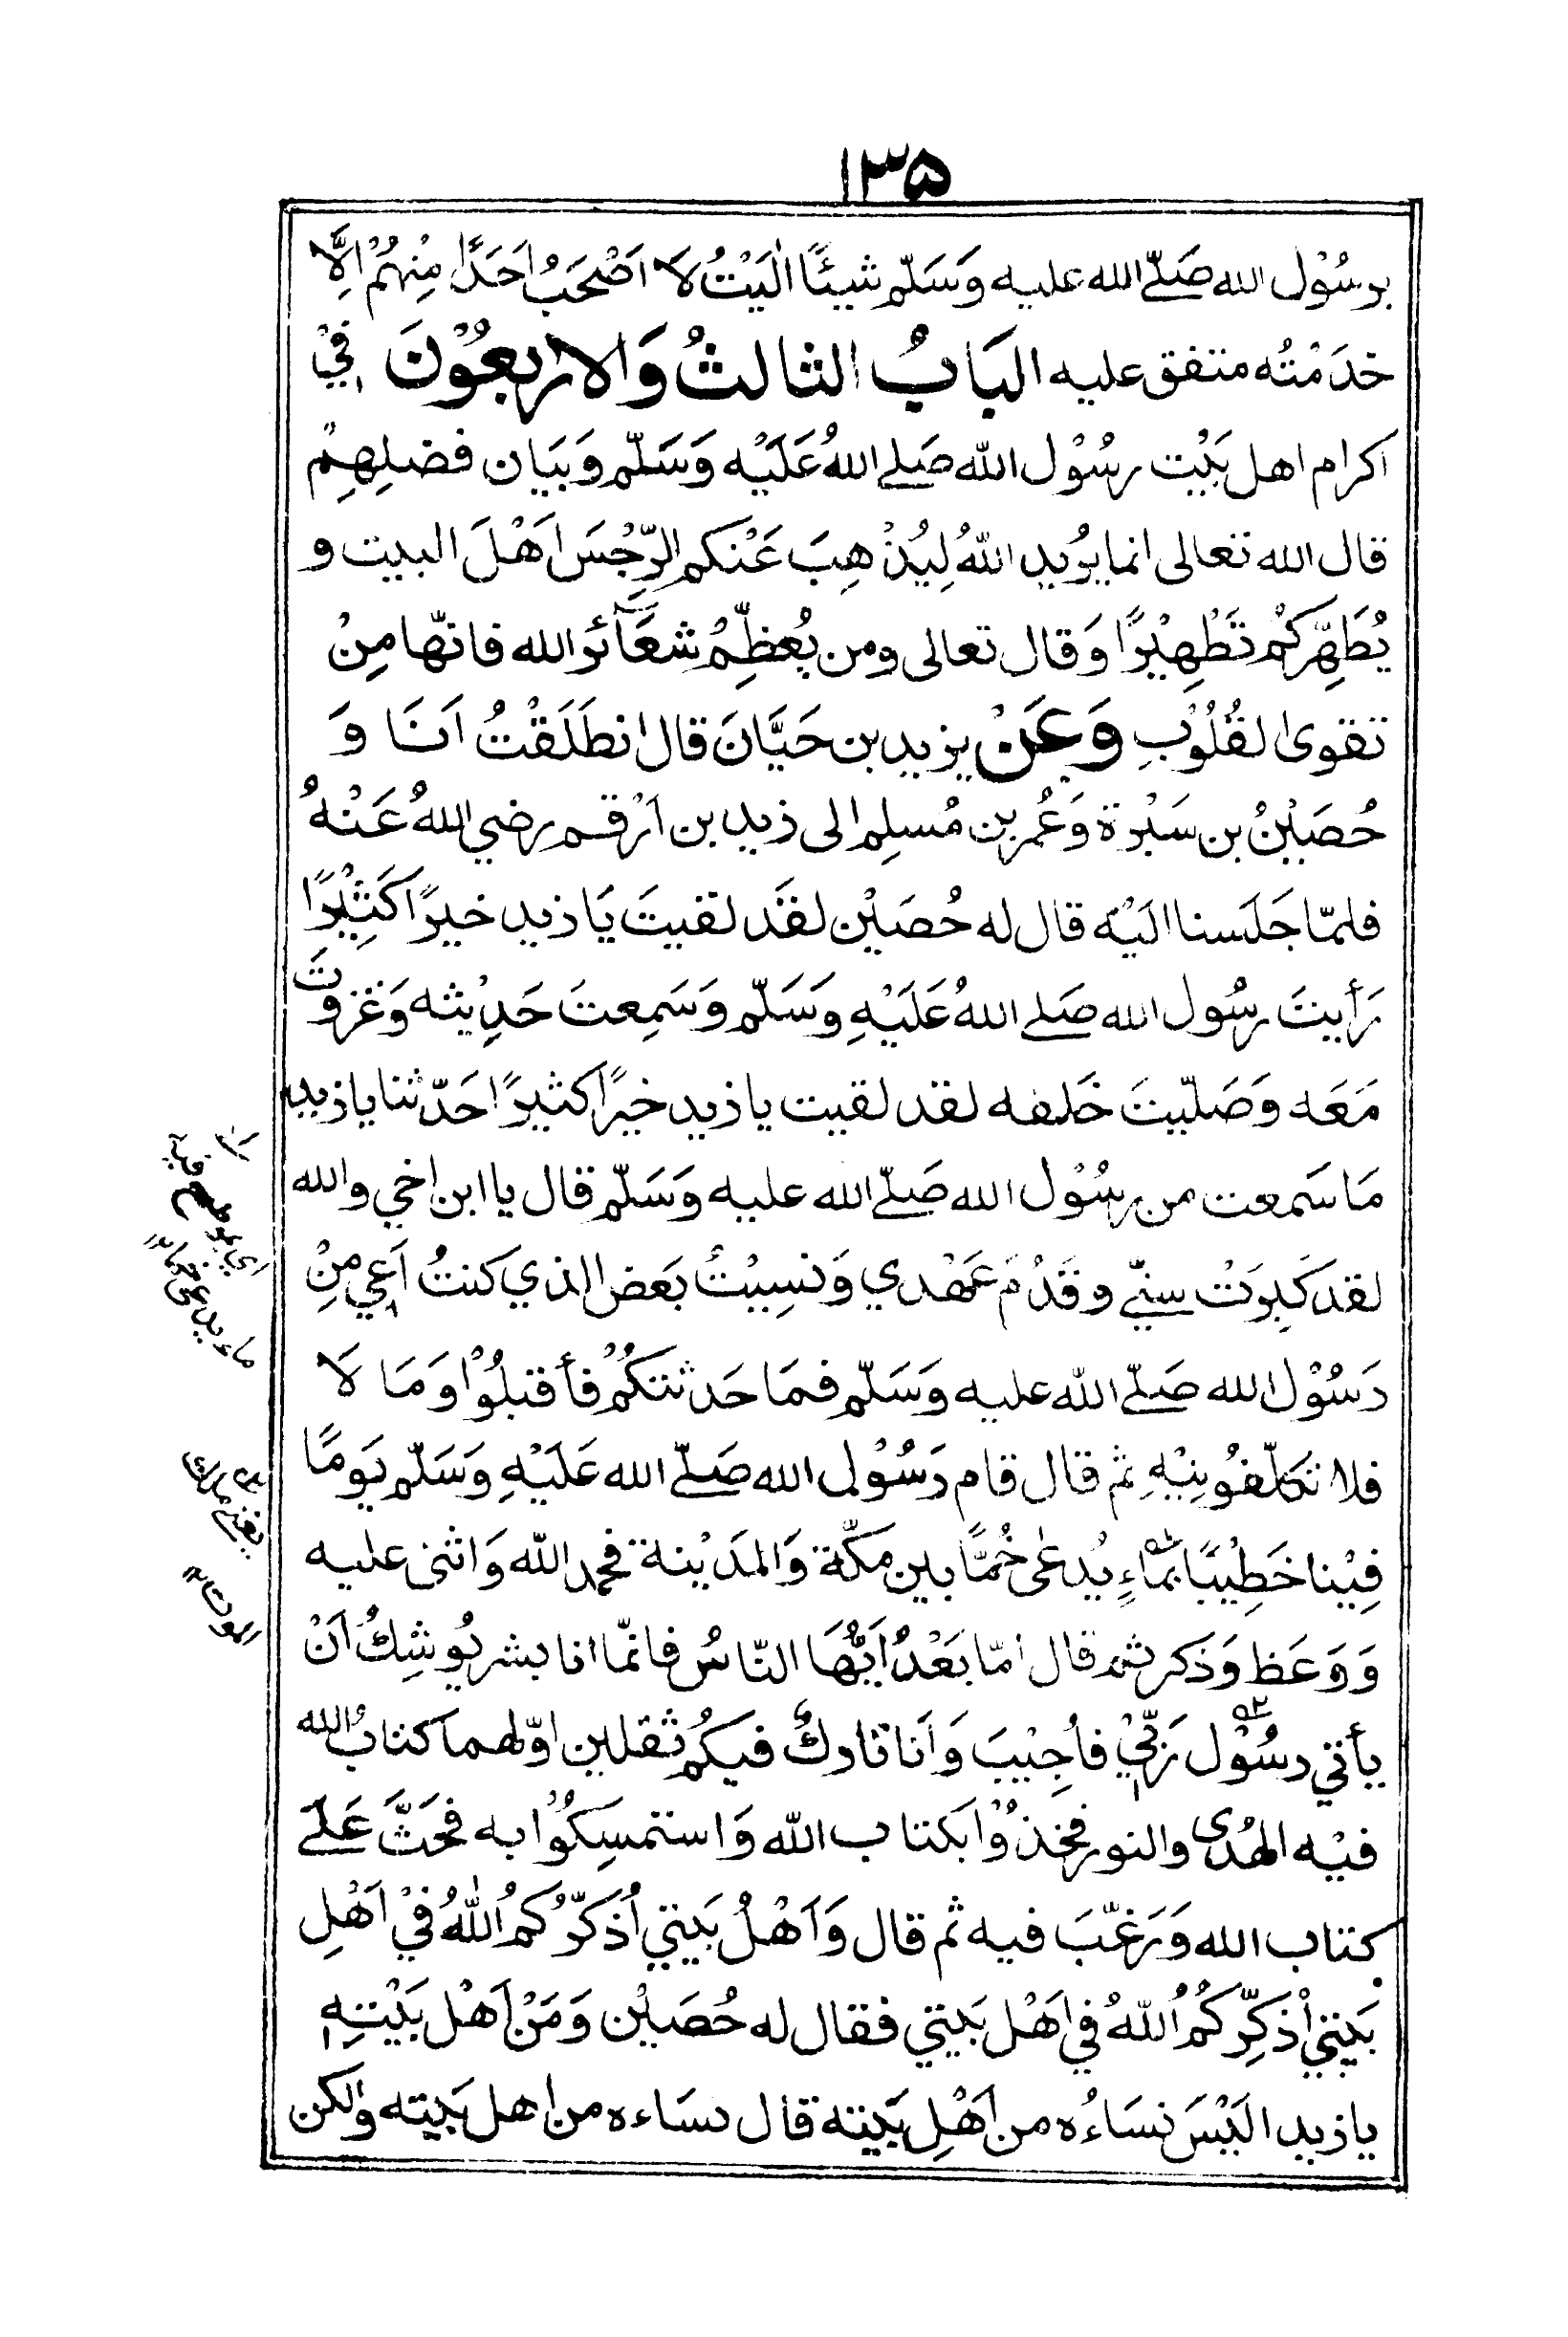 ۱۳۵
برسُوْل الله صَلّے الله عليه وَسَلّم شيئًا اٰلَيْتُ لَا اَصْحَبُ اَحَدًا مِنْهُمْ اِلَّا
خدَمْتُه متفق عليه البَابُ الثالثُ وَالاربعُوْنَ في
اكرام اهل بَيْت رسُوْل الله صَلے اللهُ عَلَيْه وَسَلّم وَبَيَان فضلِهِمْ
قال الله تعالى انما يُريد اللهُ لِيُذْهِبَ عَنْكم الرِّجْسَ اَهْلَ البيت و
يُطَهِّرَكُمْ تَطْهِيْرًا وَقال تعالى ومن يُعظِّمْ شعَآئر الله فانّها مِنْ
تقوى القُلُوْبِ وَعَنْ يزيد بن حَيَّانَ قال انطَلَقْتُ اَنَا وَ
حُصَيْنُ بن سَبْرة وَعُمر بن مُسلِم الى زيد بن اَرْقم رضي اللهُ عَنْهُ
فلمّا جَلَسنا اليْه قال له حُصَيْن لقَد لقيتَ يَا زيد خيرًا كَثِيْرًا
رَأيتَ رسُول الله صَلے اللهُ عَلَيْهِ وَسَلّم وَسَمِعتَ حَدِيْثه وَغزوتَ
مَعَه وَصَلّيتَ خَلفه لقد لقيت يا زيد خيرًا كثيرًا حَدّثنا يا زيد
مَا سَمعت من رسُوْل الله صَلّے الله عليه وَسَلّم قال يا ابن اخي والله
لقد كَبِرَتْ سنّي وقَدُمَ عَهْدي وَنسِيْتُ بَعض الذي كنتُ اَعِي مِنْ
رَسُوْل الله صَلّے الله عليه وَسَلّم فمَا حَدثتكُمْ فأقبلُوْا وَمَا لَا
فلا تكلّفُونِيْهِ ثم قال قام رَسُوْل الله صَلّے الله عَلَيْهِ وَسَلّم يَومًا
فِيْنا خَطِيْبًا بماءٍ يُدعٰى خُمًّا بين مَكّة وَالمدَيْنة فحمد الله وَاثنى عليه
وَوَعَظ وَذَكر ثم قال اَمّا بَعْدُ اَيُّهَا النّاسُ فانّما انا بشر يُوشِكُ اَنْ
يأتي رسُوْل رَبّيْ فأُجِيْبَ وَاَنا تاركٌ فيكُم ثقلين اوّلهما كتابُ الله
فيْه الهُدى والنور فخذُوْا بكتاب الله وَاستمسِكُوْا به فحَثَّ عَلے
كتاب الله وَرَغّبَ فيه ثم قال وَاَهْلُ بَيتي اُذَكّرُكُمُ اللهُ فيْ اَهْلِ
بَيتي اُذَكِّرُكُمُ اللهُ في اَهْل بَيتي فقال له حُصَيْن وَمَنْ اَهْل بَيْتِهِ
يا زيد الَيْسَ نسَاءُه من اَهْلِ بَيته قال نسَاءه من اهل بَيته ولكن